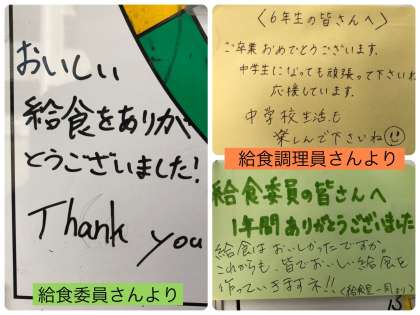 おいしい
給食をありが
とうございました!
Thank you
給食委員さんより
〈6年生の皆さんへ〉
ご卒業おめでとうございます。
中学生になっても頑張って下さいね
応援しています。
中学校生活も
楽しんで下さいね
給食調理員さんより
給食委員の皆さんへ
1年間ありがとうございました
給食はおいしかったですか。
これからも、皆でおいしい給食を
作っていきますネ!!
(給食室一同より)